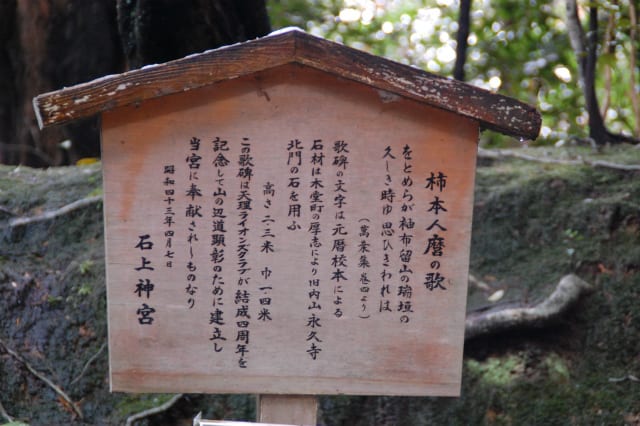 柿本人麿の歌
をとめらが袖布留山の瑞垣の
久しき時ゆ思ひきわれは
（萬葉集巻四より）
歌碑の文字は元暦校本による
石材は木堂町の厚志により旧内山永久寺
北門の石を用ふ
高さ二・三米 巾一・四米
この歌碑は天理ライオンズクラブが結成四周年を
記念して山の辺道顕彰のために建立し
当宮に奉献されしものなり
昭和四十三年四月七日
石上神宮